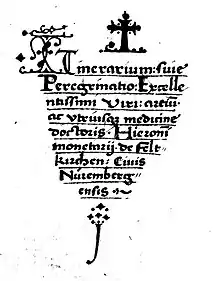 Itinerarium: siue
Peregrinatio: Excelle
ntissimi Viri: artiu:
ac vtriusq3 medicine
doctoris. Hieronimi
monetarij. de Felt
kirchen: Ciuis
Nuremberg
ensis